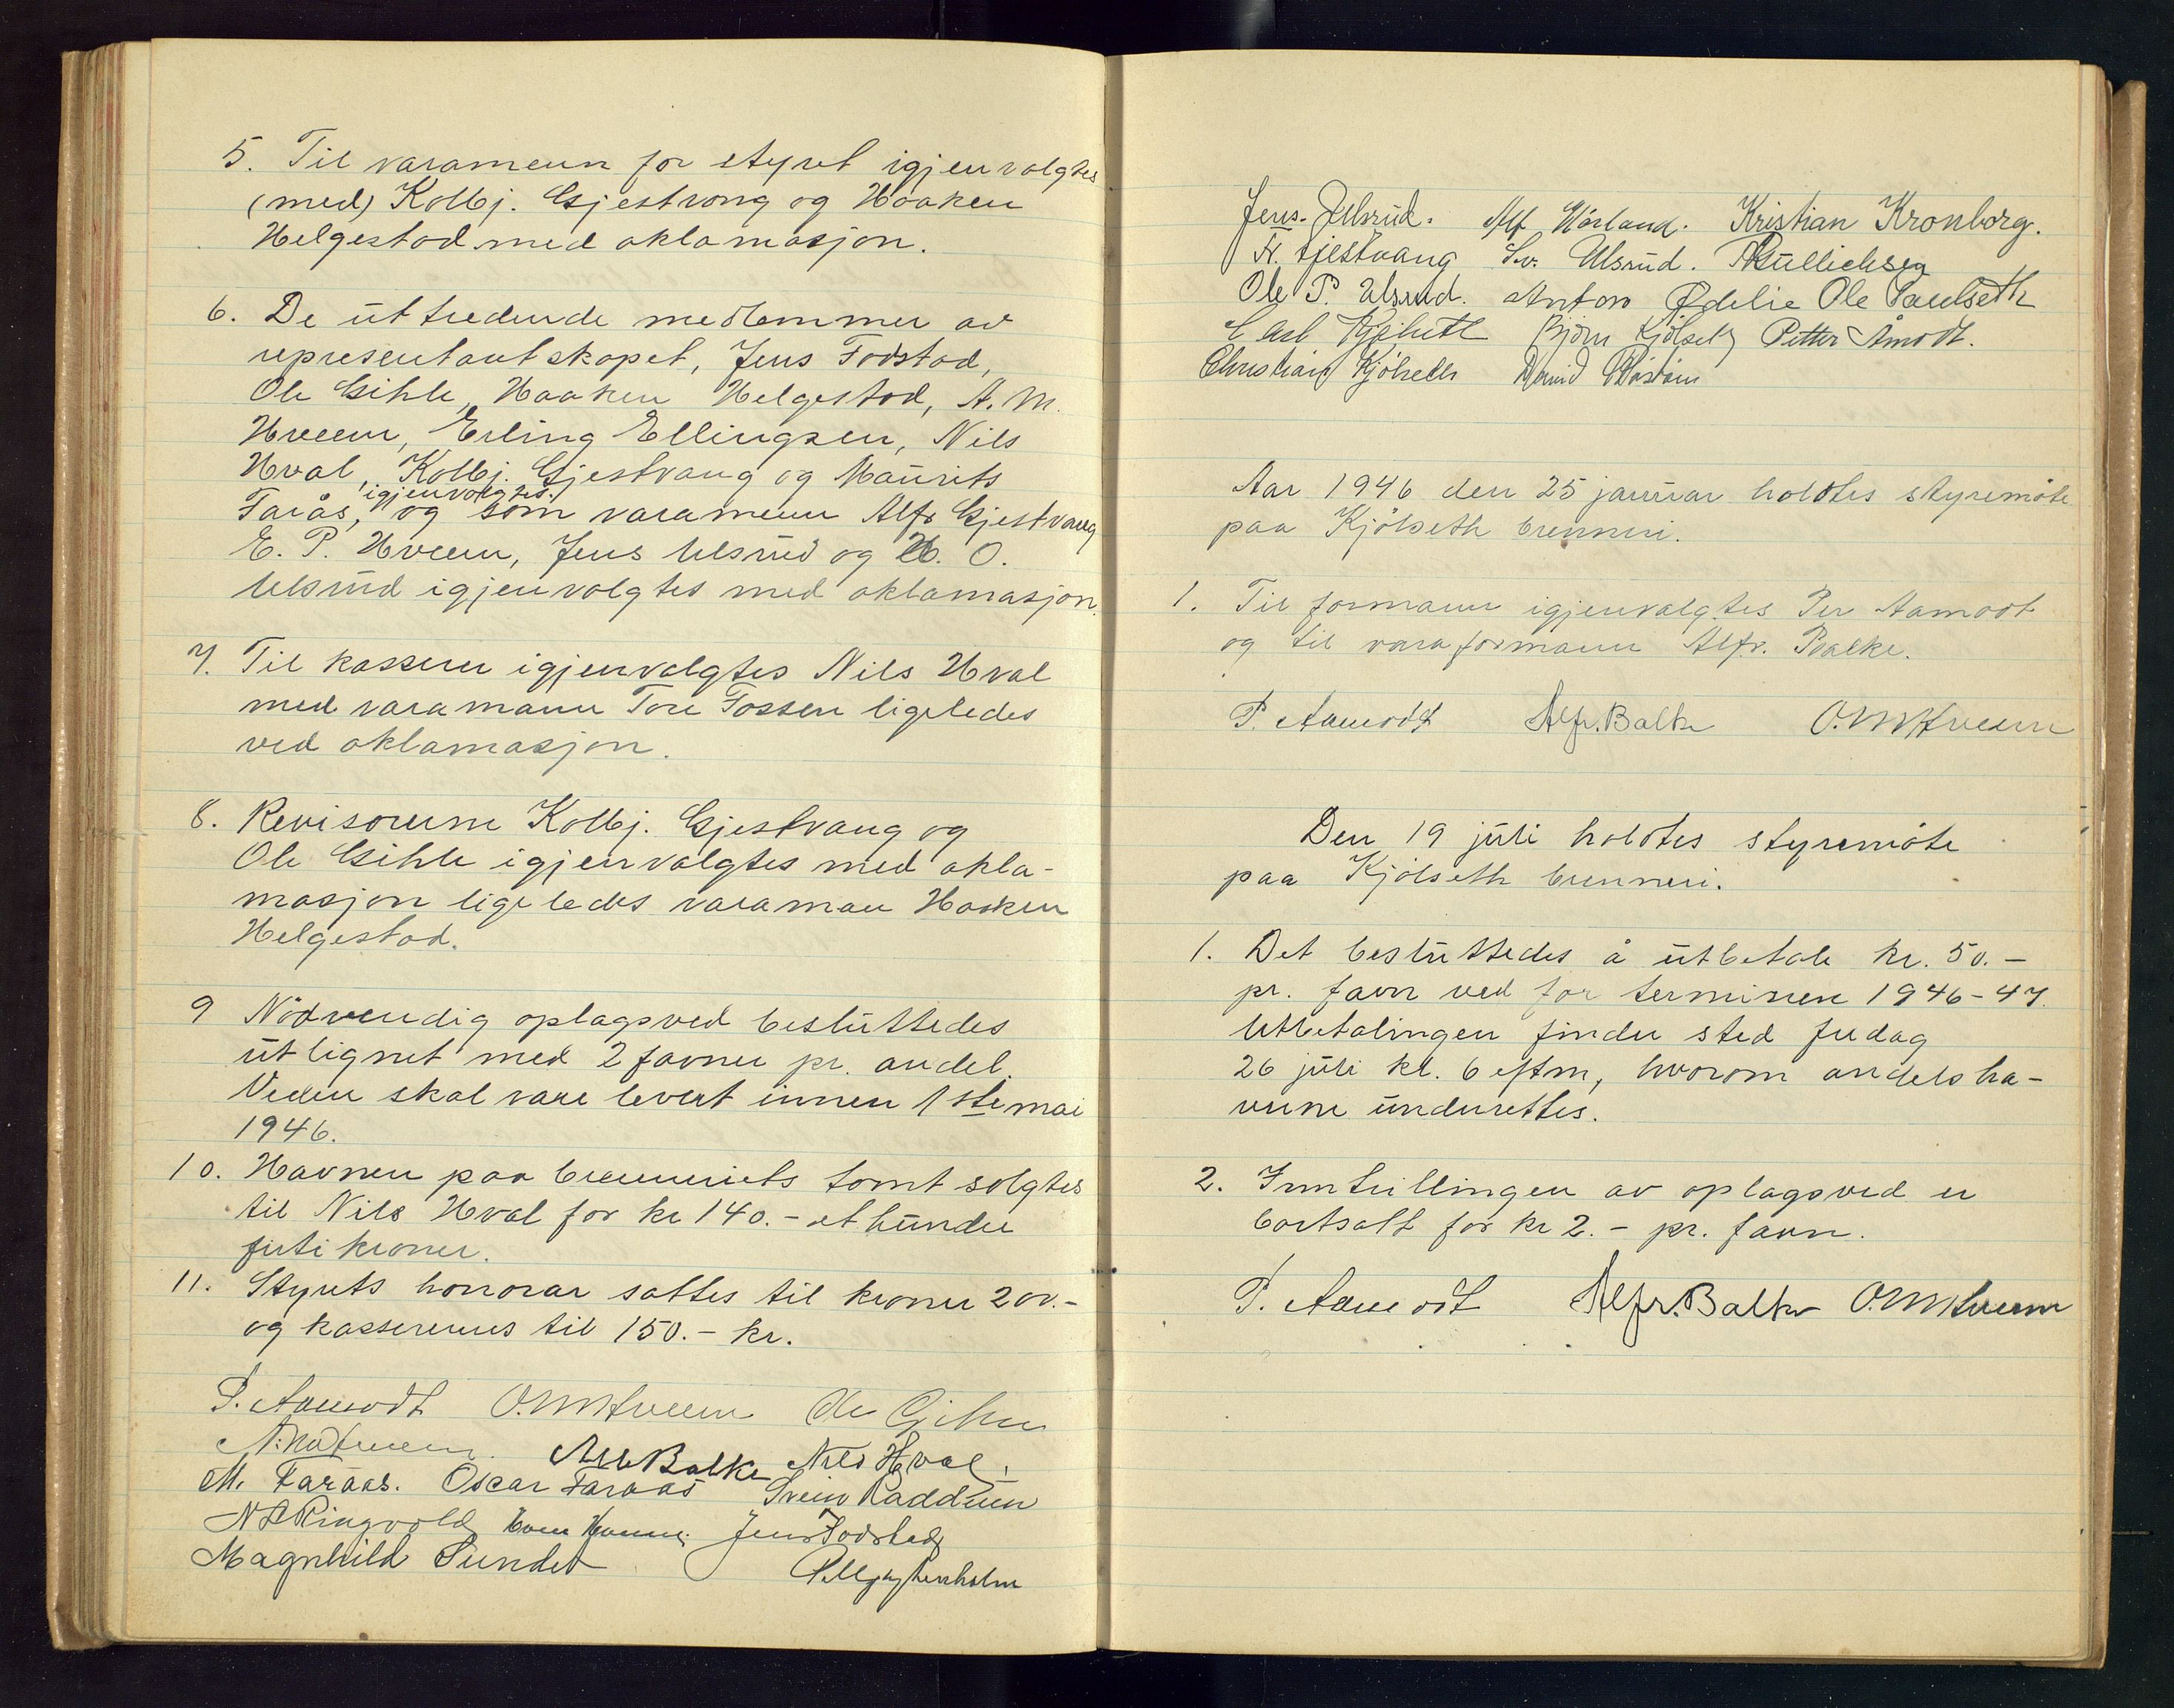 5. Til varamenn for styret igjenvalgtes
(med) Kolbj. Gjestvang og Haaken
Helgestad med aklamasjon.
6. De uttredende medlemmer av
representantskapet, Jens Fodstad,
Ole Gihle, Haaken Helgestad, A. M.
Hveem, Erling Ellingsen, Nils
Hval, Kolbj. Gjestvang og Maurits
igjenvalgtes.
Farås, og som varamenn Alfr Gjestvang
E. P. Hveem, Jens Ulsrud og H. O.
Ulsrud igjenvalgtes med aklamasjon.
7. Til kasserer igjenvalgtes Nils Hval
med varamann Tore Fossen ligeledes
ved aklamasjon.
8. Revisorerne Kolbj. Gjestvang og
Ole Gihle igjenvalgtes med akla-
masjon ligeledes varaman Haaken
Helgestad.
9 Nödvendig oplagsved besluttedes
utlignet med 2 favner pr. andel.
Veden skal være levert innen 1ste mai
1946.
10. Havnen paa brenneriets tomt solgtes
til Nils Hval for kr 140.- et hundre
firti kroner.
11. Styrets honorar sattes til kroner 200.-
og kassererens til 150.- kr.
P. Aamodt O.M Hveem Ole Gihle
A. M Hveem. Alfr Balke Nils Hval.
M. Faraas. Oscar Faraas Svein Raddum
N Ringvold Jens Fodstad
Magnhild Sundet
Jens. Ulsrud. Alf Hörland. Kristian Kronborg.
H. Gjestvang Sv. Ulsrud.
Ole P. Ulsrud. Anton Ødelie Ole Saulseth
Björn Kjölseth Petter Åmodt.
Christian Kjölseth
Aar 1946 den 25 januar holdtes styremöte
paa Kjölseth brenneri.
1. Til formann igjenvalgtes Per Aamodt
og til varaformann Alfr. Balke.
P. Aamodt Alfr. Balke O.M Hveem
Den 19 juli holdtes styremöte
paa Kjölseth brenneri.
1. Det besluttedes å utbetale kr. 50.-
pr. favn ved for terminen 1946-47.
Utbetalingen finder sted fredag
26 juli kl. 6 eftm, hvorom andelsha-
verne underrettes.
2. Inntrillingen av oplagsved er
bortsatt for kr 2.- pr. favn.
P. Aamodt Alfr. Balke O.M Hveem